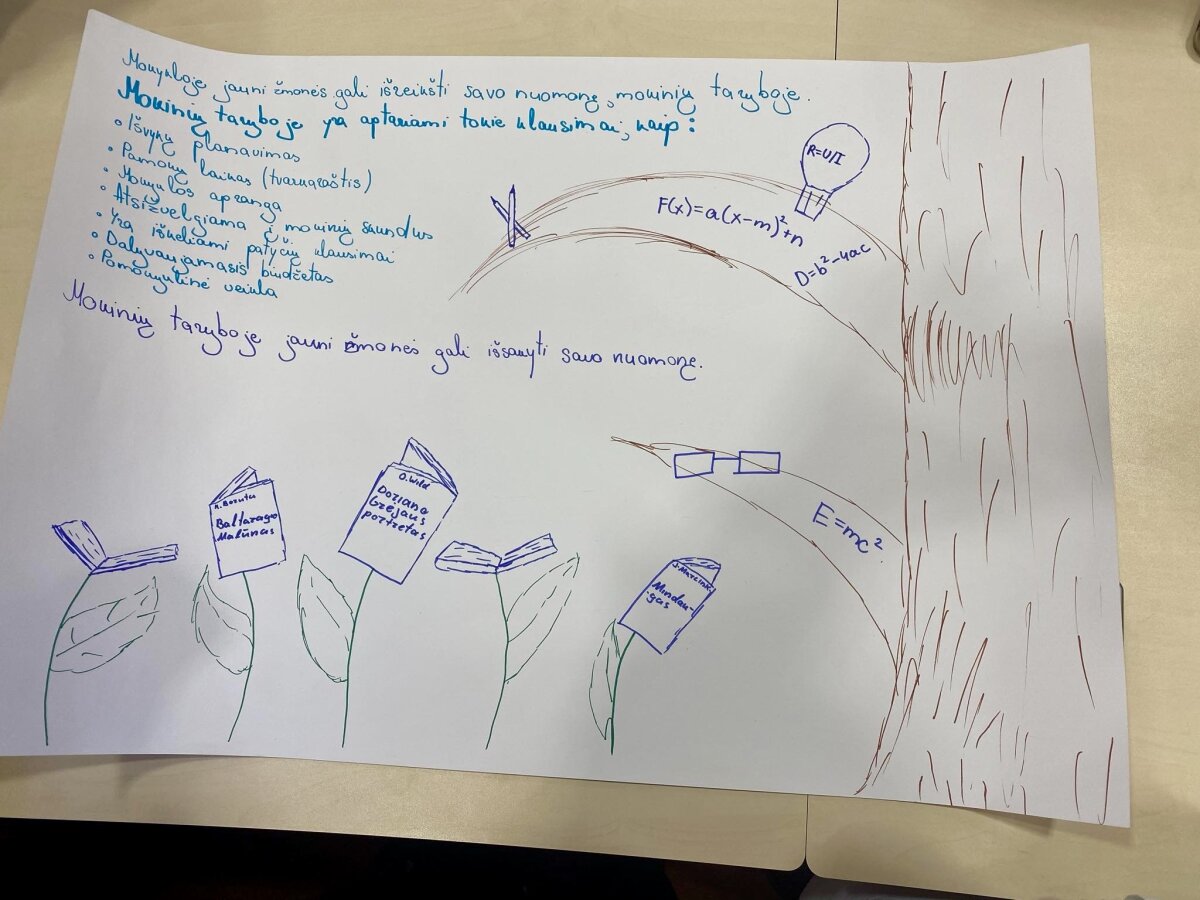 Mokykloje jauni žmonės gali išreikšti savo nuomonę, mokinių taryboje.
Mokinių taryboje yra aptariami tokie klausimai, kaip:
• Išvykų planavimas
• Pamokų laikas (tvarkaraštis)
• Mokyklos apranga
• Atsižvelgiama į mokinių skundus
• Yra iškeliami patyčių klausimai
• Dalyvaujamasis biudžetas
• Pamokyklinė veikla
Mokinių taryboje jauni žmonės gali išsakyti savo nuomonę.
R=U/I
F(x)=a(x-m)²+n
D=b²-4ac
E=mc²
K. Boruta
Baltaragio
Malūnas
O. Wild
Doriano
Grėjaus
portretas
J. Marcink.
Mindau-
gas